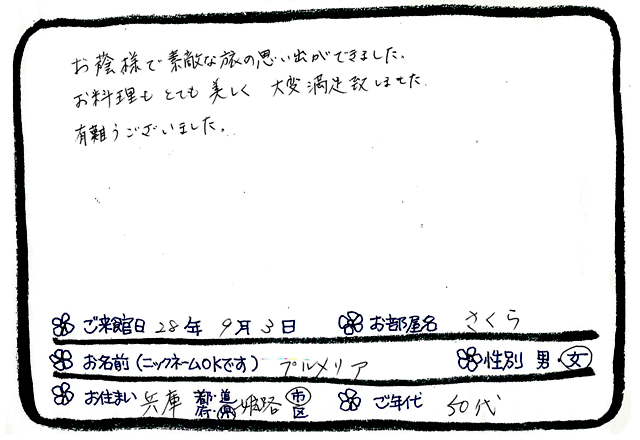 お蔭様で素敵な旅の思い出ができました。
お料理もとても美しく 大変満足致しました
有難うございました。
ご来館日 28年 9月 3日 お部屋名 さくら
お名前(ニックネームOKです) プルメリア 性別 男・女
お住まい 兵庫 都・道・府・県 姫路 市区 ご年代 50代